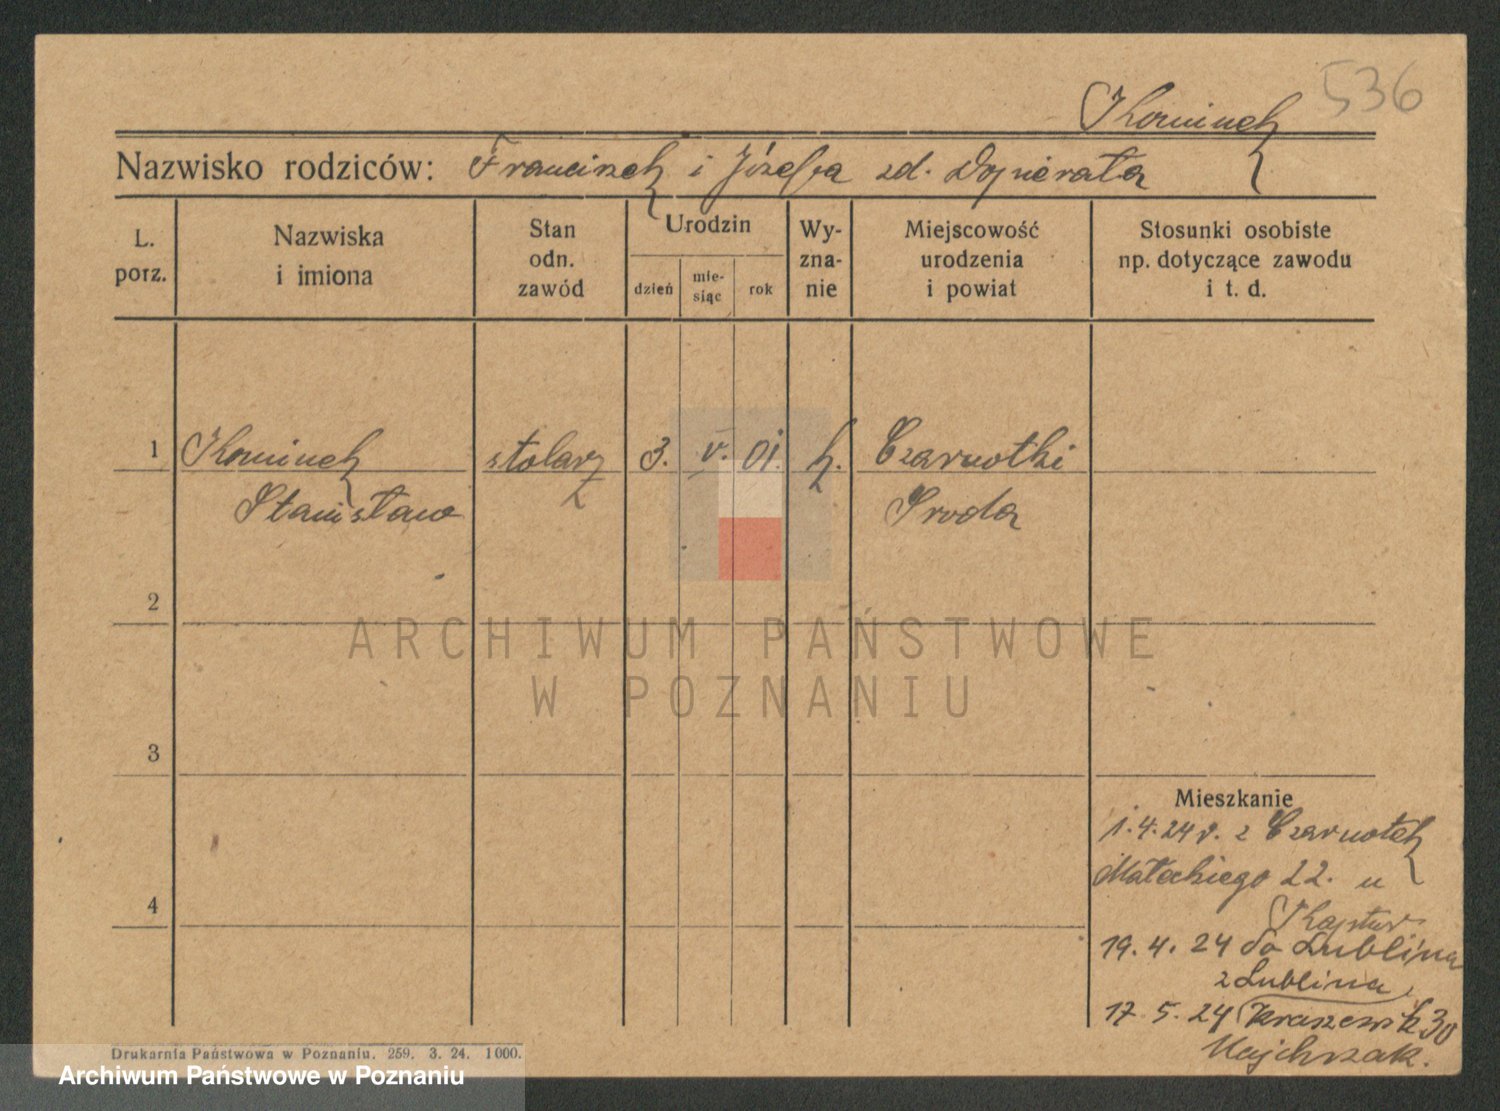 536
Kominek
Nazwisko rodziców: Franciszek i Józefa zd. Dopierała
L. porz.
Nazwiska i imiona
Stan odn. zawód
Urodzin
dzień
mie-siąc
rok
Wy-zna-nie
Miejscowość urodzenia i powiat
Stosunki osobiste np. dotyczące zawodu i t. d.
1 Kominek stolarz 3. V. 01. k. Czarnotki
Stanisław Środa
2
3
4
ARCHIWUM PAŃSTWOWE
W POZNANIU
Mieszkanie
1.4.24 r. z Czarnotek
Małeckiego 22. u
Kaptur
19.4.24 do Lublina
z Lublina
17.5.24 Kraszewsk 30
Majchrzak.
Drukarnia Państwowa w Poznaniu. 259. 3. 24. 1000.
Archiwum Państwowe w Poznaniu